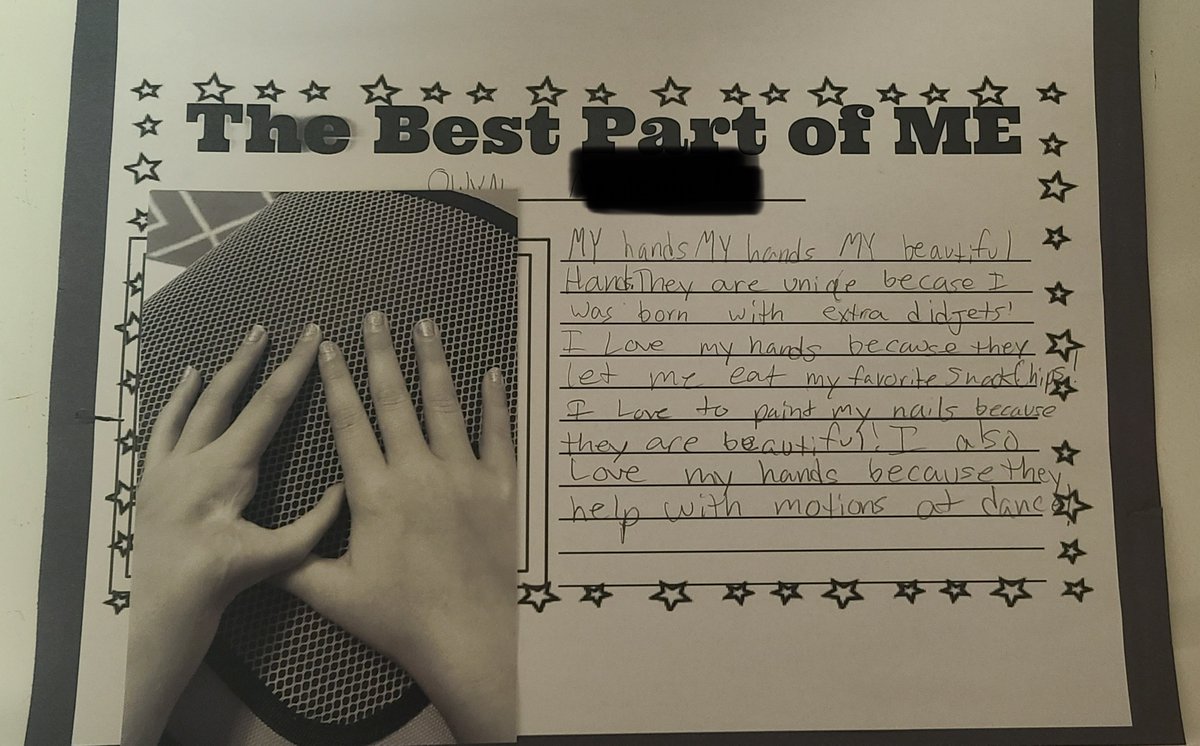 The Best Part of ME
MY hands MY hands MY beautiful
Hands. They are uniqe becase I
was born with extra didgets!
I Love my hands because they
let me eat my favorite Snack Chips!
I Love to paint my nails because
they are beautiful! I also
Love my hands because they
help with motions at dance!